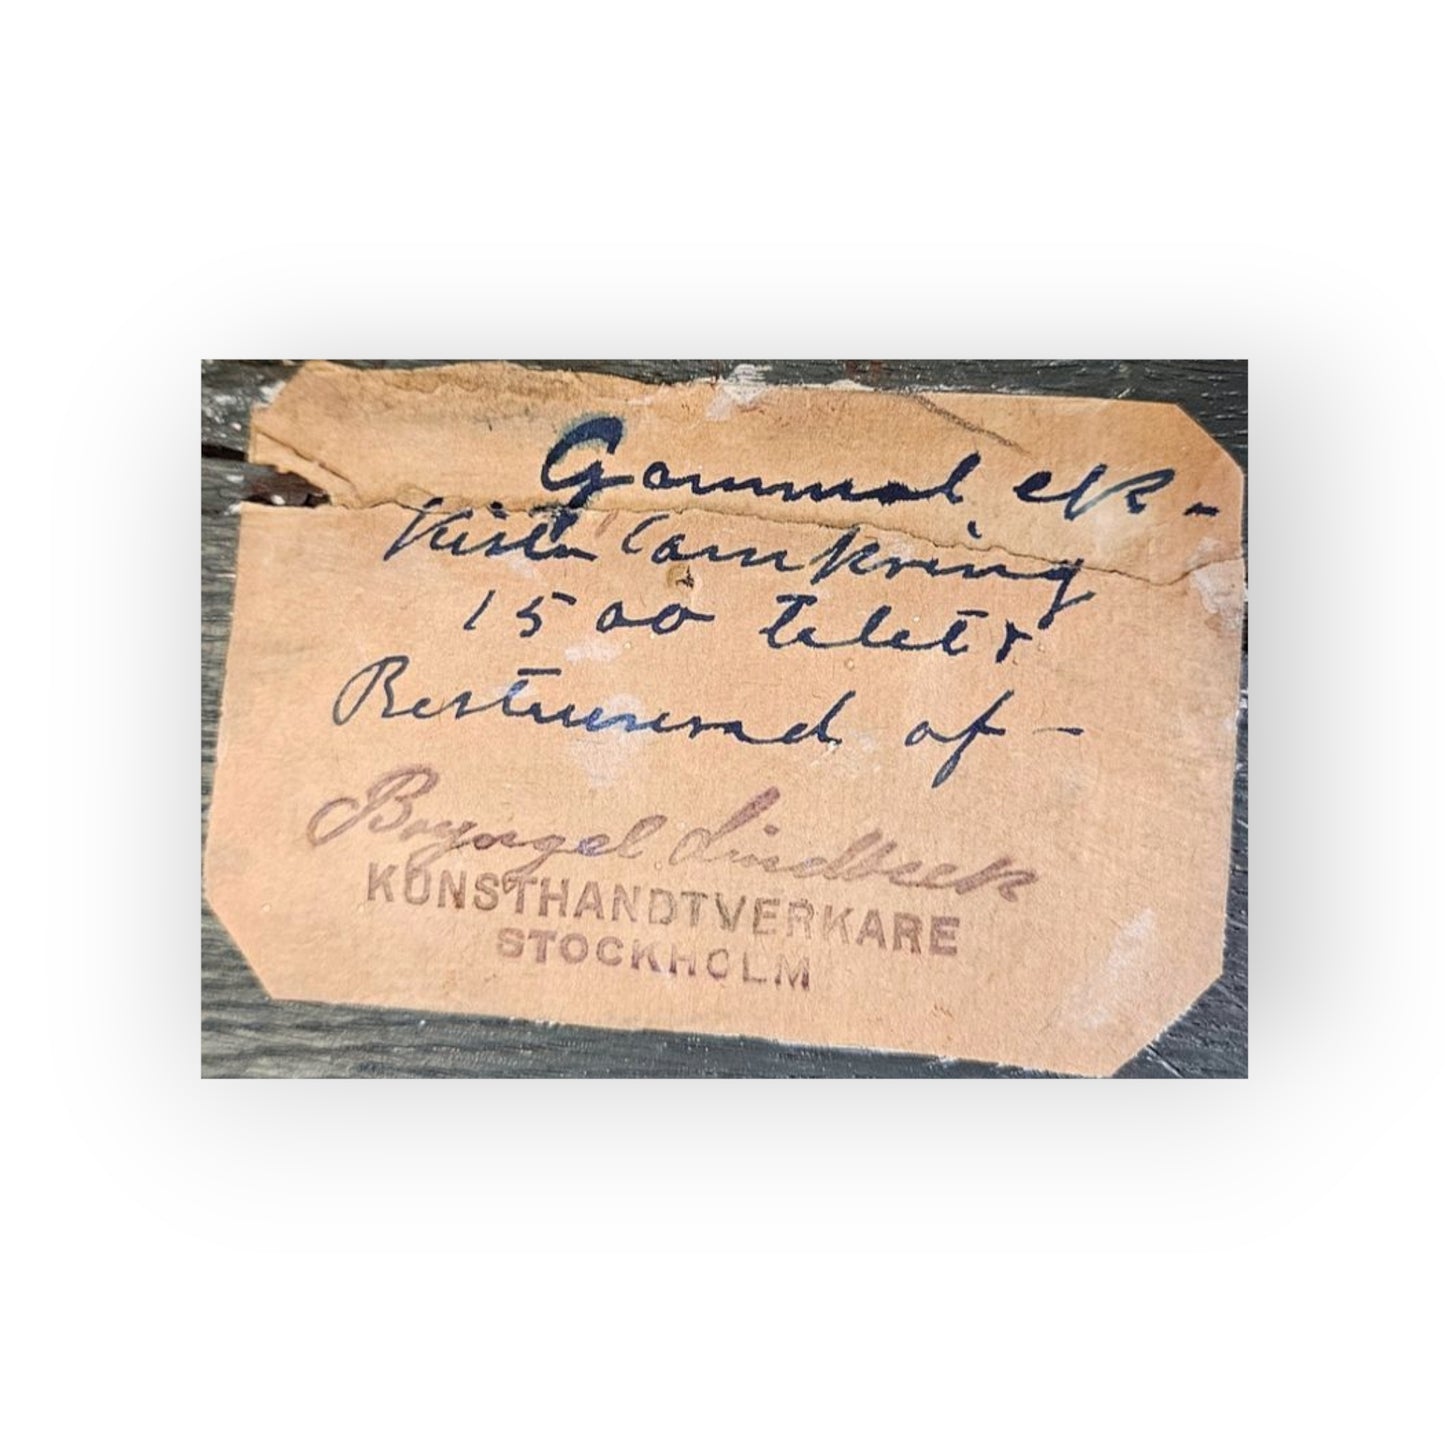 Gammal ek-
Kista (omkring
1500 talet)
Restaurerad af -
Lindbeck
KUNSTHANDTVERKARE
STOCKHOLM